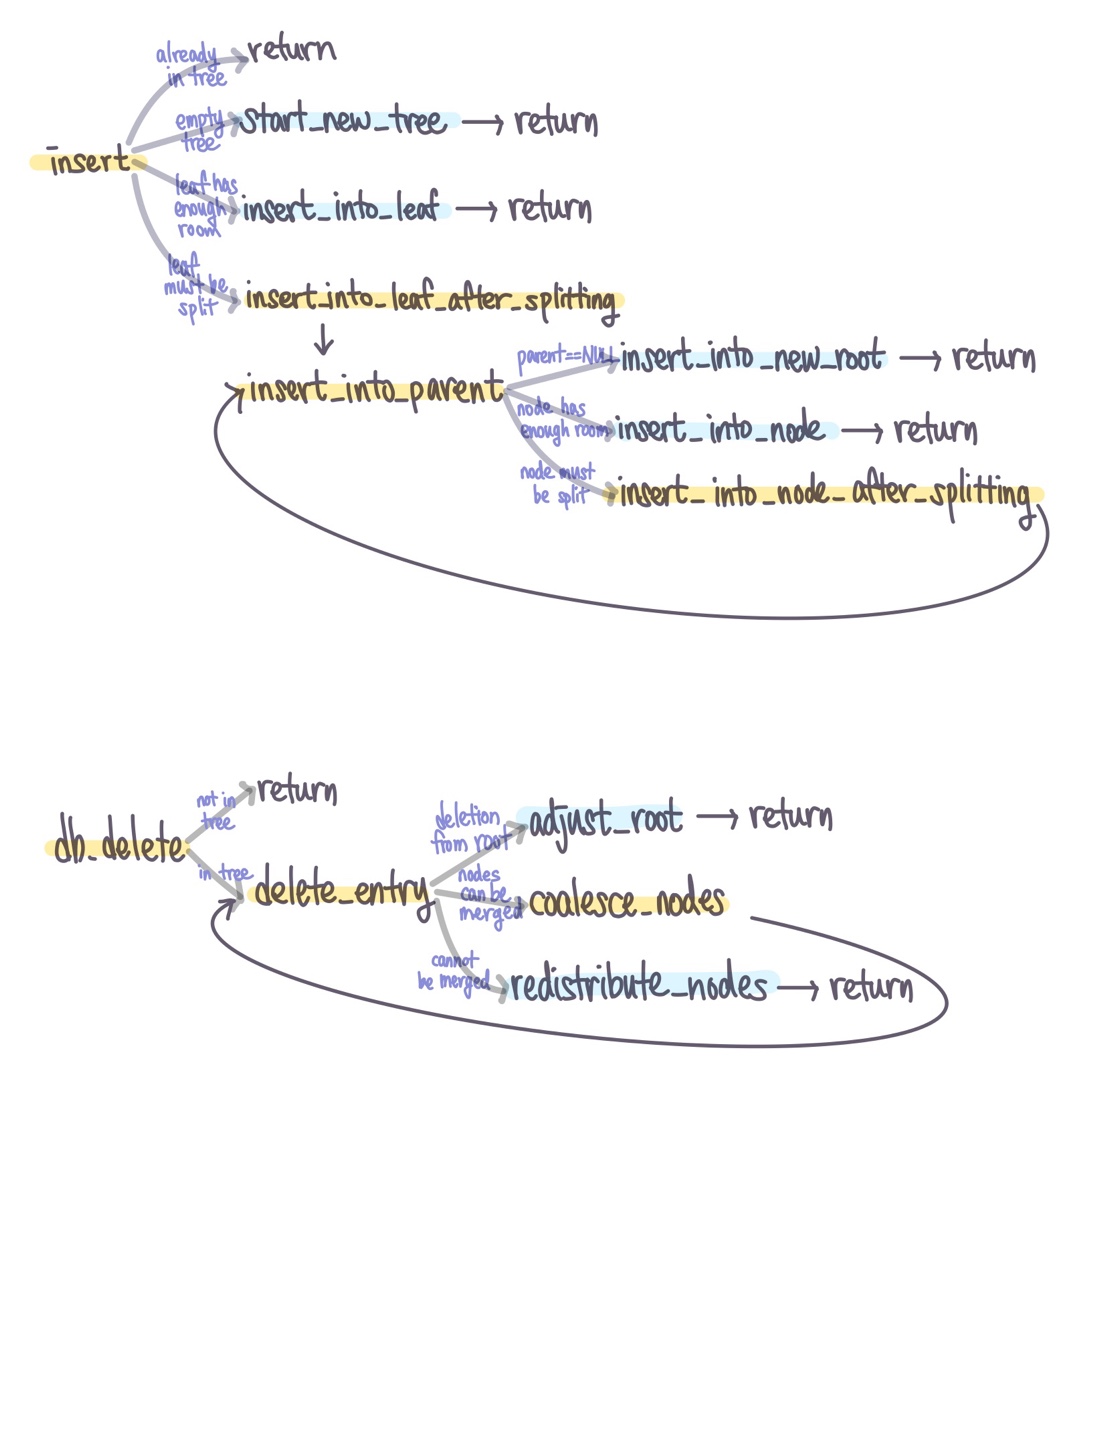 already
in tree
return
empty
tree
start_new_tree → return
insert
leaf has
enough
room
insert_into_leaf → return
leaf
must be
split
insert_into_leaf_after_splitting
↓
insert_into_parent
parent==NULL
insert_into_new_root → return
node has
enough room
insert_into_node → return
node must
be split
insert_into_node_after_splitting
db_delete
not in
tree
return
in tree
delete_entry
deletion
from root
adjust_root → return
nodes
can be
merged
coalesce_nodes
cannot
be merged
redistribute_nodes → return